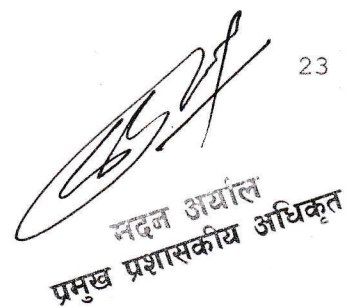 23
मदन अर्याल
प्रमुख प्रशासकीय अधिकृत